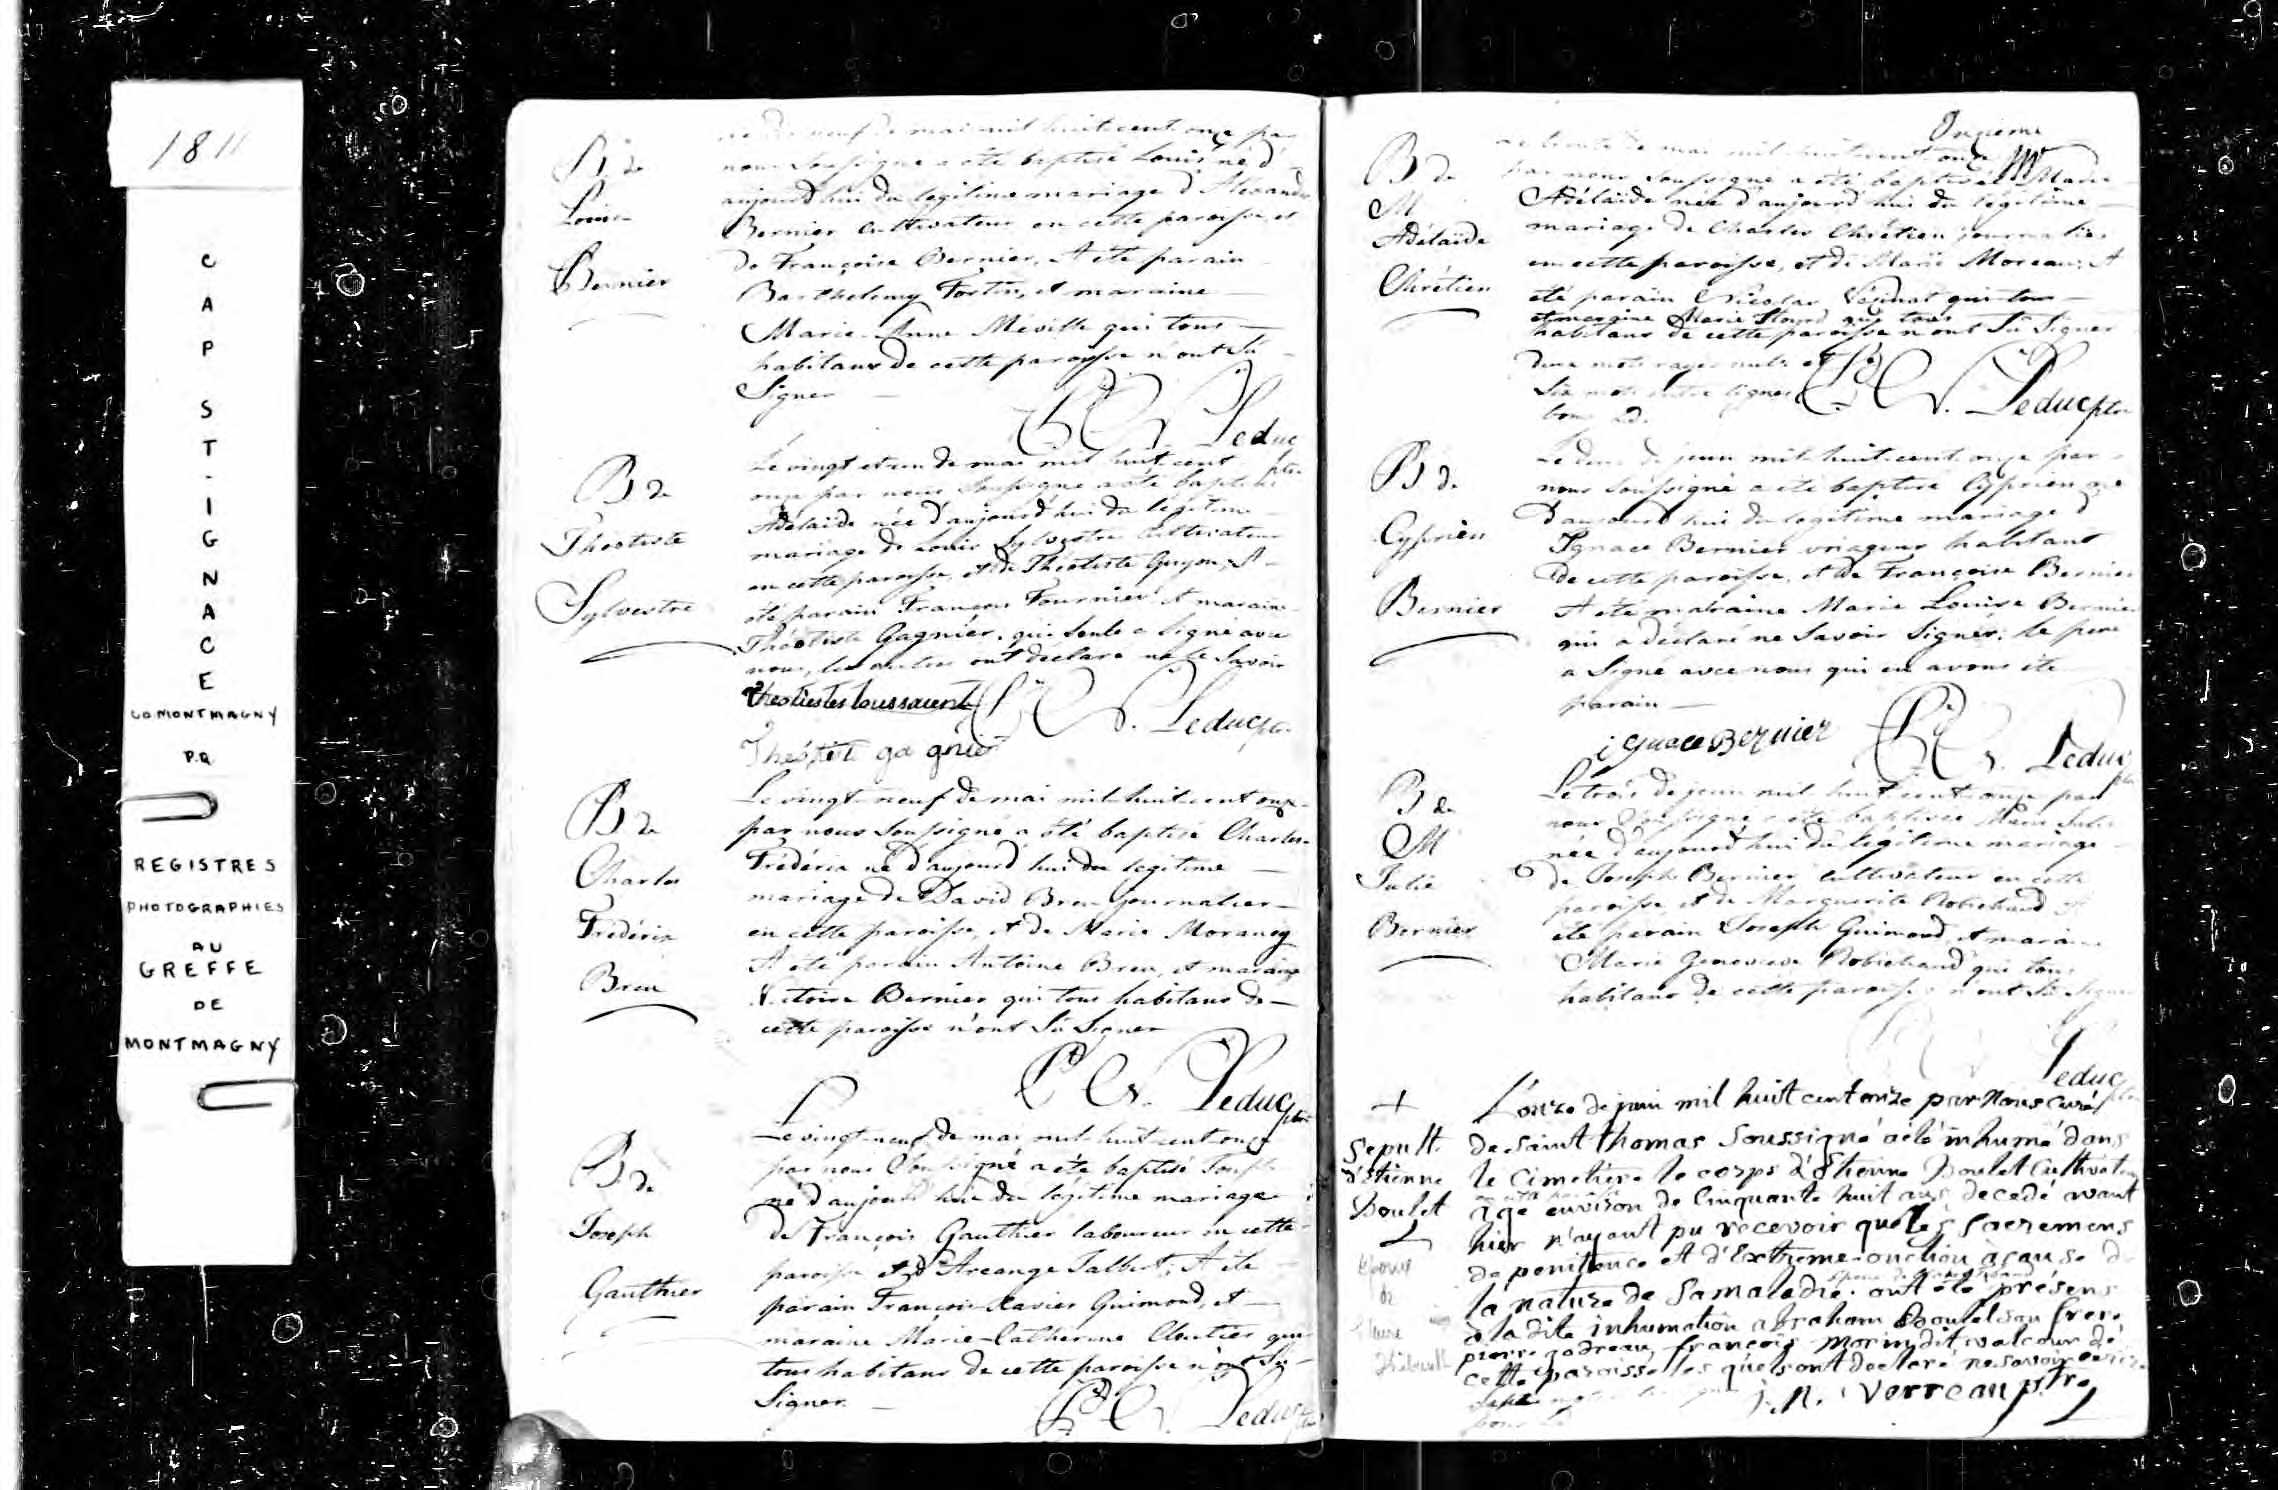 1811
CAP ST-IGNACE
CO MONTMAGNY
P.Q.
REGISTRES
PHOTOGRAPHIES
AU
GREFFE
DE
MONTMAGNY
B de
Louis
Bernier
neuf de mai mil huit cent onze par
nous soussigné a été baptisé Louis né d'
aujourd'hui du legitime mariage d'Alexandre
Bernier cultivateur en cette paroisse, et
de Françoise Bernier, A été parain
Barthelemy Fortin, et maraine
Marie-Anne Méville qui tous
habitans de cette paroisse n'ont sû
signer
Leduc ptre
B de
Théotiste
Sylvestre
Le vingt et un de mai mil huit cent
onze par nous soussigné a été baptisée
Adélaïde née d'aujourd'hui du légitime
mariage de Louis Sylvestre cultivateur
en cette paroisse, et de Théotiste Guyon, A
été parain François Fournier et maraine
Théotiste Gagnier, qui seule a signé avec
nous, les autres ont déclaré ne le savoir
Leduc ptre
gagnier
B de
Charles
Frédéric
Breu
Le vingt-neuf de mai mil-huit-cent onze
par nous soussigné a été baptisé Charles-
Frédéric né d'aujourd'hui du legitime
mariage de David Breu journalier
en cette paroisse, et de Marie Morancy
A été parain Antoine Breu, et maraine
Victoire Bernier qui tous habitans de
cette paroisse n'ont sû signer
Leduc ptre
B de
Joseph
Gauthier
Le vingt-neuf de mai mil-huit-cent onze
par nous soussigné a été baptisé Joseph
né d'aujourd'hui du legitime mariage
de François Gauthier laboureur en cette
paroisse et d'Arcange Talbot; A été
parain François-Xavier Guimond, et
maraine Marie-Catherine Cloutier qui
tous habitans de cette paroisse n'ont su
signer.
Leduc ptre
Onzieme
B de
M
Adélaïde
Chrétien
trente de mai mil-huit-cent onze
par nous soussigné a été baptisée Marie
Adélaïde née d'aujourd'hui du légitime
mariage de Charles Chrétien journalier
en cette paroisse, et de Marie Moreau; A
été parain Nicolas qui tous
et maraine Marie qui tous
habitans de cette paroisse n'ont sû signer
deux mots rayés nuls et
six mots entre lignes
bons
Leduc ptre
B de
Cyprien
Bernier
Le deux de juin mil-huit-cent onze par
nous soussigné a été baptisé Cyprien né
d'aujourd'hui du legitime mariage d'
Ignace Bernier habitant
de cette paroisse, et de Françoise Bernier
A été maraine Marie Louise Bernier
qui a déclaré ne savoir signer; le pere
a signé avec nous qui en avons été
parain
ignace Bernier
Leduc ptre
B de
M
Julie
Bernier
Le trois de juin mil huit cent onze par
nous soussigné a été baptisée Marie Julie
née d'aujourd'hui du légitime mariage
de Joseph Bernier cultivateur en cette
paroisse, et de Marguerite Robichaud A
été parain Joseph Guimond, et maraine
Marie Genevieve Robichaud qui tous
habitans de cette paroisse n'ont sû signer
Leduc ptre
+
Sepult.
d'Etienne
Boulet
Epoux
de
L'onze de juin mil huit cent onze par Nous curé
de Saint Thomas Soussigné a été inhumé dans
le Cimetiere le corps d'Etienne Boulet Cultivateur
agé environ de Cinquante huit ans decedé avant
hier n'ayant pu recevoir que les sacremens
de penitence et d'Extreme-onction à cause de
la nature de sa maladie. ont été présens
à la dite inhumation abraham Boulet son frere
pierre godreau, françois morin dit valcour de
cette paroisse lesquels ont declaré ne savoir ecrire
J.N. Verreau ptre